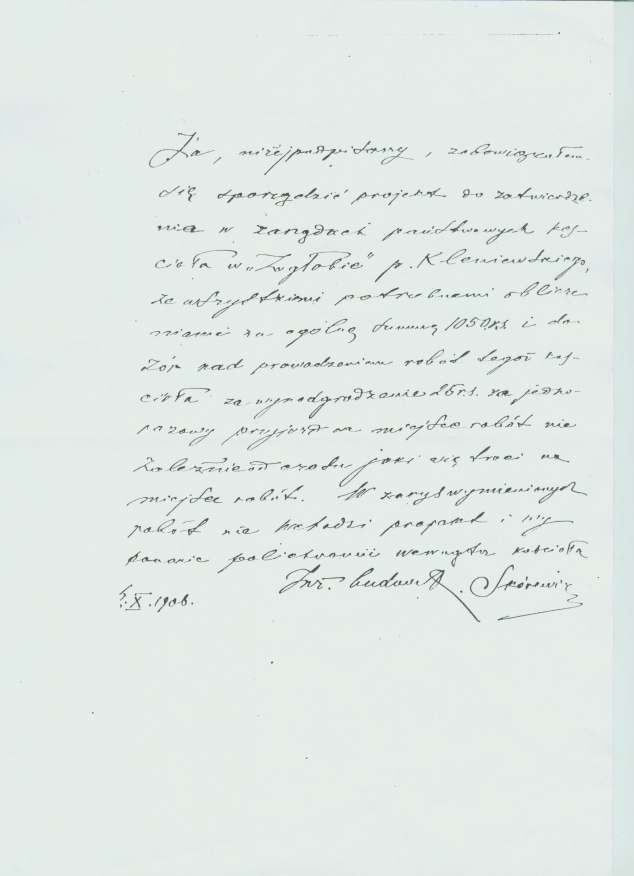 Ja, niżejpodpisany, zobowiązałem
się sporządzić projekt do zatwierdze-
nia w zarządach państwowych koś-
cioła w „Zwgłobie” p. Kleniewskiego,
ze wszystkiemi potrzebnemi oblicze
niami za ogólną summę 1050 rs. i do-
zór nad prowadzeniem robót tegoż koś-
cioła za wynadgrodzenie 25 r.s. za jedno-
razowy przyjazd na miejsce robót nie
zależnie od czasu jaki się traci na
miejsce robót. W zarys wymienionych
robót nie wchodzi projekt i wy
konanie wewnątrz kościoła
Inż. budown. Skórewicz
X. 1906.